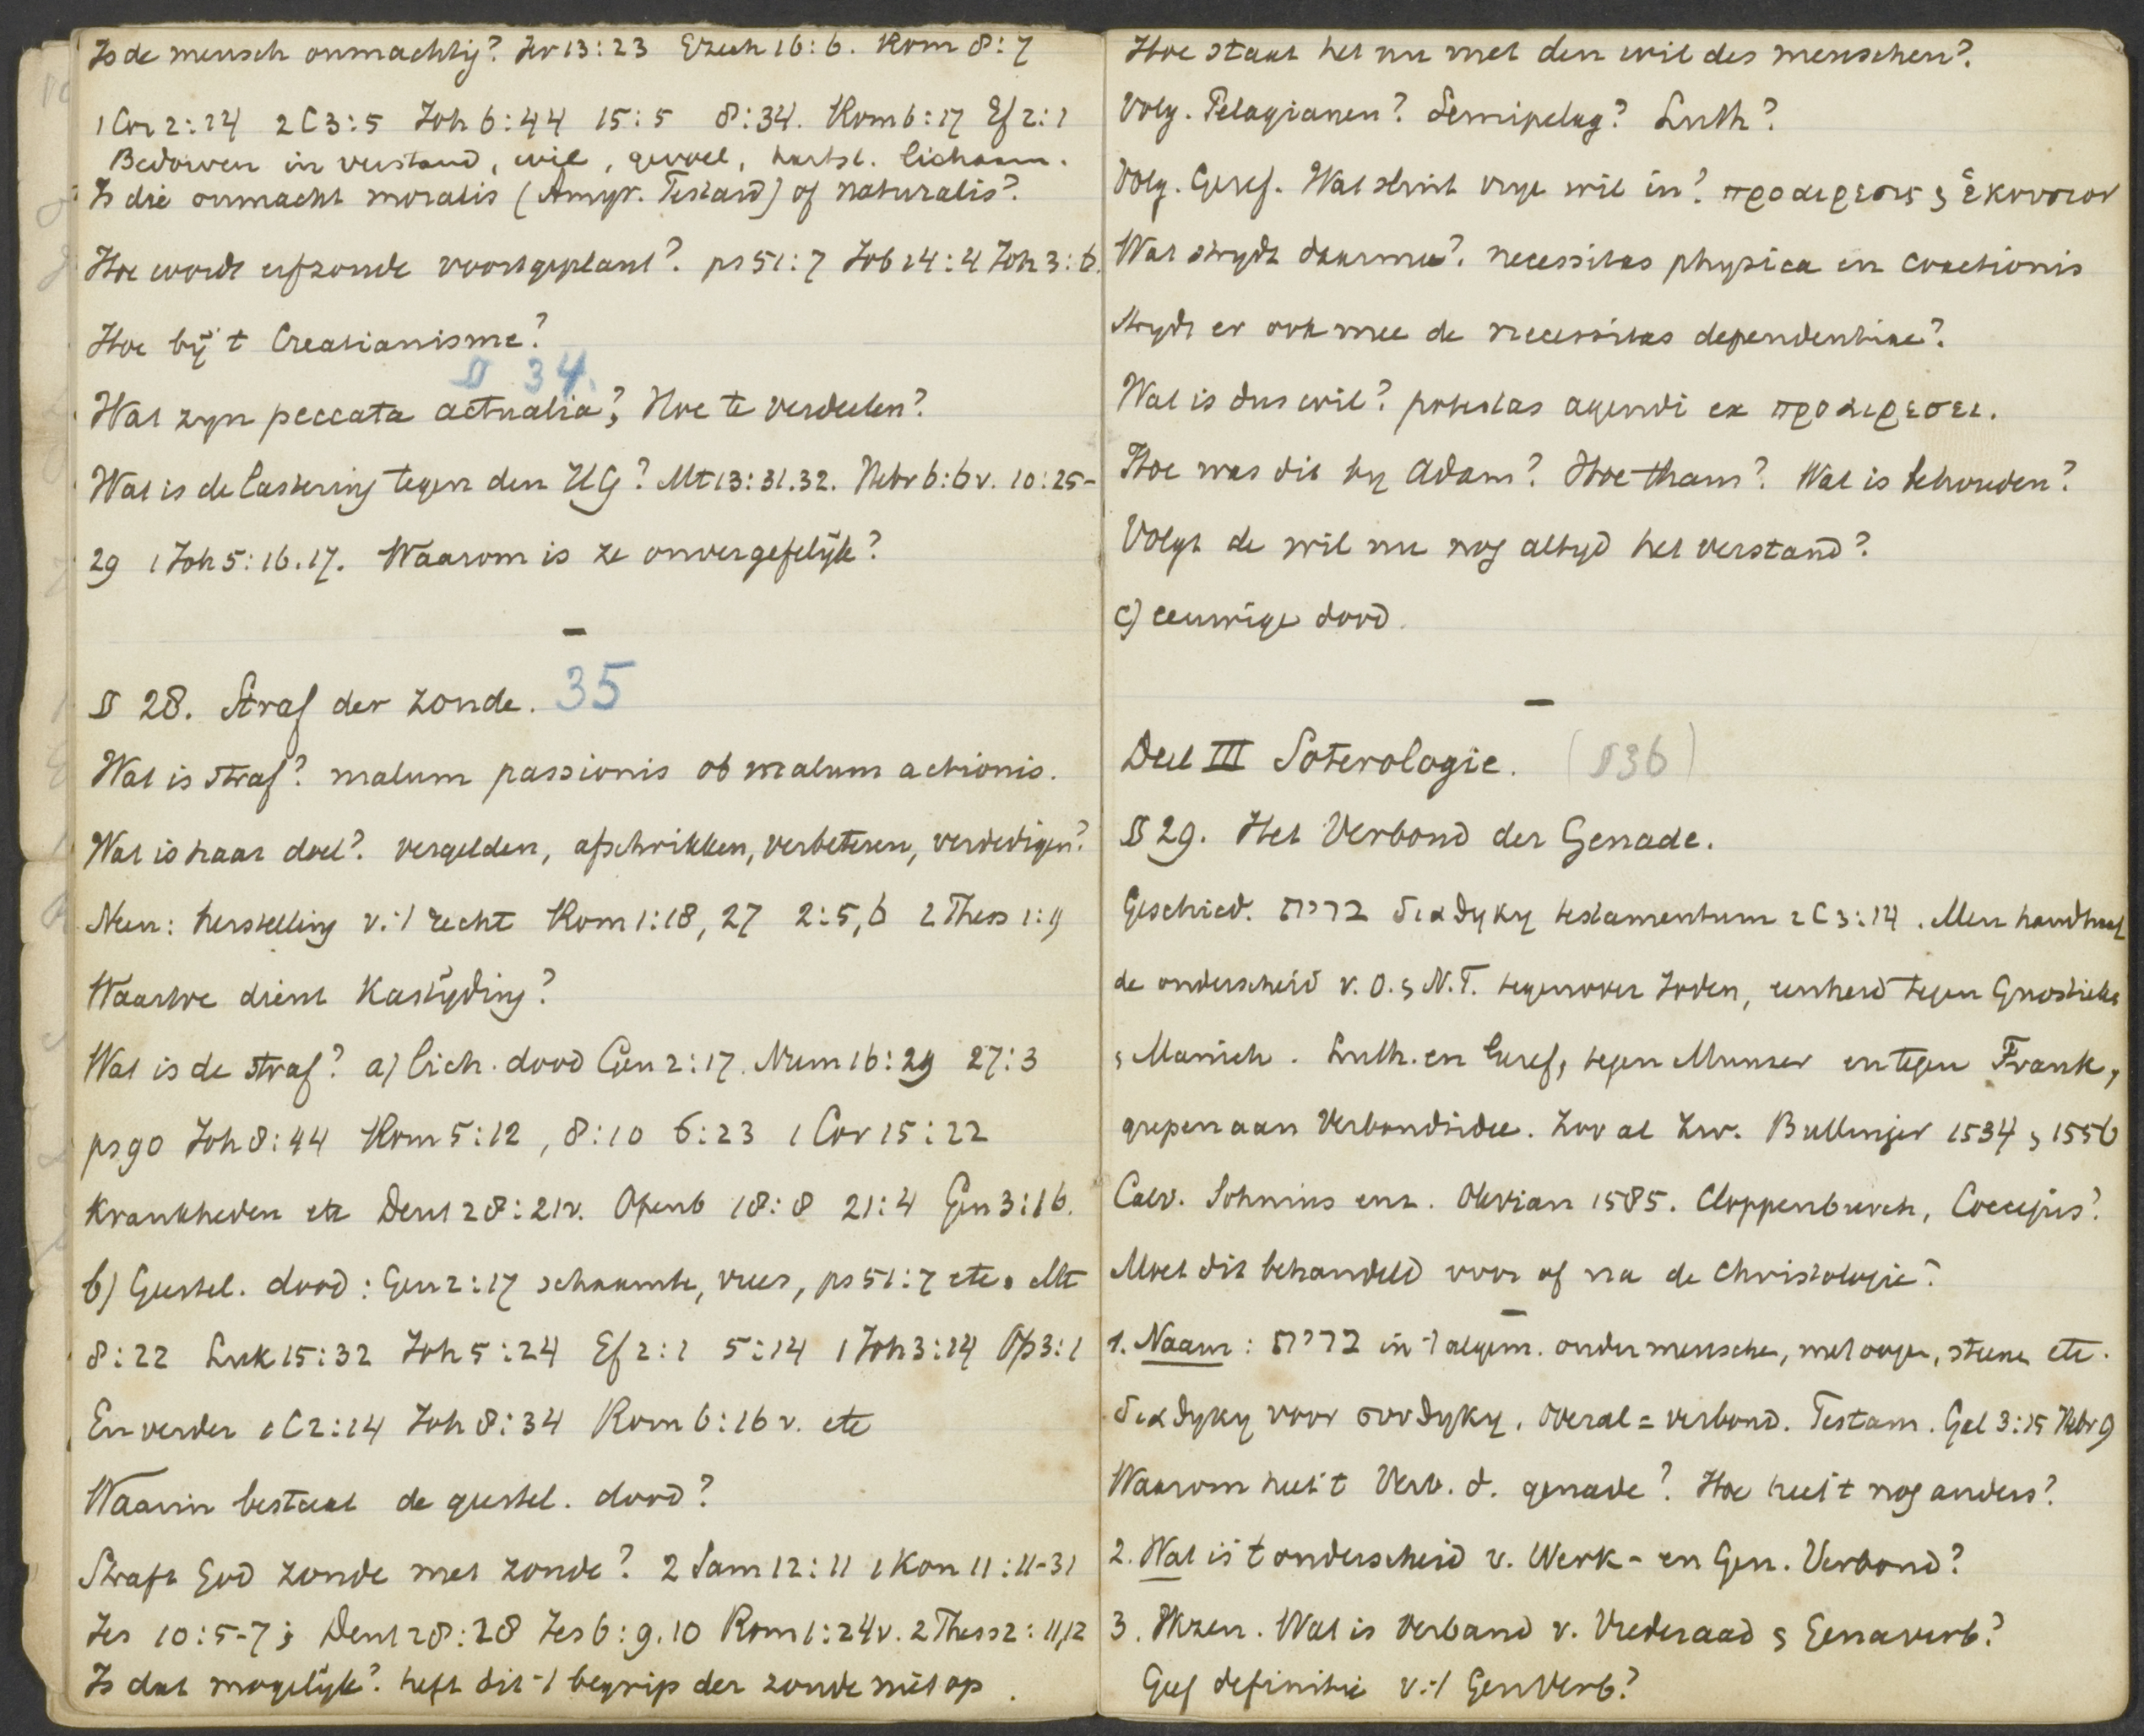 Is de mensch onmachtig? Jer 13:23 Ezech 16:6. Rom 8:7
1 Cor 2:14 2 C 3:5 Joh 6:44 15:5 8:34. Rom 6:17 Ef 2:1
Bedorven in verstand, wil, gevoel, hartst. lichaam.
Is die onmacht moralis (Amyr. Testard) of naturalis?
Hoe wordt erfzonde voortgeplant? ps 51:7 Job 14:4 Joh 3:6.
Hoe bij t Creatianisme?
§ 34.
Wat zyn peccata actualia? Hoe te verdeelen?
Wat is de lastering tegen den HG? Mt 13:31.32. Hebr 6:6v. 10:25-
29 1 Joh 5:16.17. Waarom is ze onvergefelijk?
—
§ 28. Straf der zonde. 35
Wat is straf? malum passionis ob malum actionis.
Wat is haar doel? vergelden, afschrikken, verbeteren, verdedigen?
Neen: herstelling v. 't recht Rom 1:18, 27 2:5,6 2 Thess 1:9
Waartoe dient Kastijding?
Wat is de straf? a) lich. dood Gen 2:17. Num 16:29 27:3
ps 90 Joh 8:44 Rom 5:12, 8:10 6:23 1 Cor 15:22
Krankheden etc Deut 28:21v. Openb 18:8 21:4 Gen 3:16.
b) Geestel. dood: Gen 2:17 schaamte, vrees, ps 51:7 etc. Mt
8:22 Luk 15:32 Joh 5:24 Ef 2:1 5:14 1 Joh 3:14 Op 3:1
En verder 1 C 2:14 Joh 8:34 Rom 6:16 v. etc
Waarin bestaat de geestel. dood?
Straft God zonde met zonde? 2 Sam 12:11 1 Kon 11:11-31
Jes 10:5-7; Deut 28:28 Jes 6:9.10 Rom 1:24v. 2 Thess 2:11,12
Is dat mogelijk? heft dit 't begrip der zonde niet op.
Hoe staat het nu met den wil des menschen?
Volg. Pelagianen? Semipelag? Luth?
Volg. Geref. Wat sluit vrye wil in? προαιρεσις & ἑκουσιον
Wat strydt daarmee? necessitas physica en coactionis
strydt er ook mee de necessitas dependentiae?
Wat is dus wil? potestas agendi ex προαιρεσει.
Hoe was dit by Adam? Hoe thans? Wat is behouden?
Volgt de wil nu nog altyd het verstand?
c) eeuwige dood.
—
Deel III Soterologie. (§36)
§ 29. Het Verbond der Genade.
Geschied. ברית διαθηκη testamentum 2 C 3:14. Men handhaaf
de onderscheid v. O. & N.T. tegenover Joden, eenheid tegen Gnostieke
& Manich. Luth. en Geref, tegen Munzer en tegen Frank,
grepen aan Verbondsidee. Zoo al Zw. Bullinger 1534 & 1556
Calv. Sohnius enz. Olevian 1585. Cloppenburch, Coccejus?
Moet dit behandeld voor of na de Christologie?
—
1. Naam: ברית in 't algem. onder mensche, met ooge, steene etc.
διαθηκη voor συνθηκη. overal = verbond. Testam. Gal 3:15 Hebr 9
Waarom heet t Verb. d. genade? Hoe heet t nog anders?
2. Wat is t onderscheid v. Werk- en Gen. Verbond?
3. Wezen. Wat is Verband v. Vrederaad & Genaverb?
Geef definitie v. 't GenVerb?